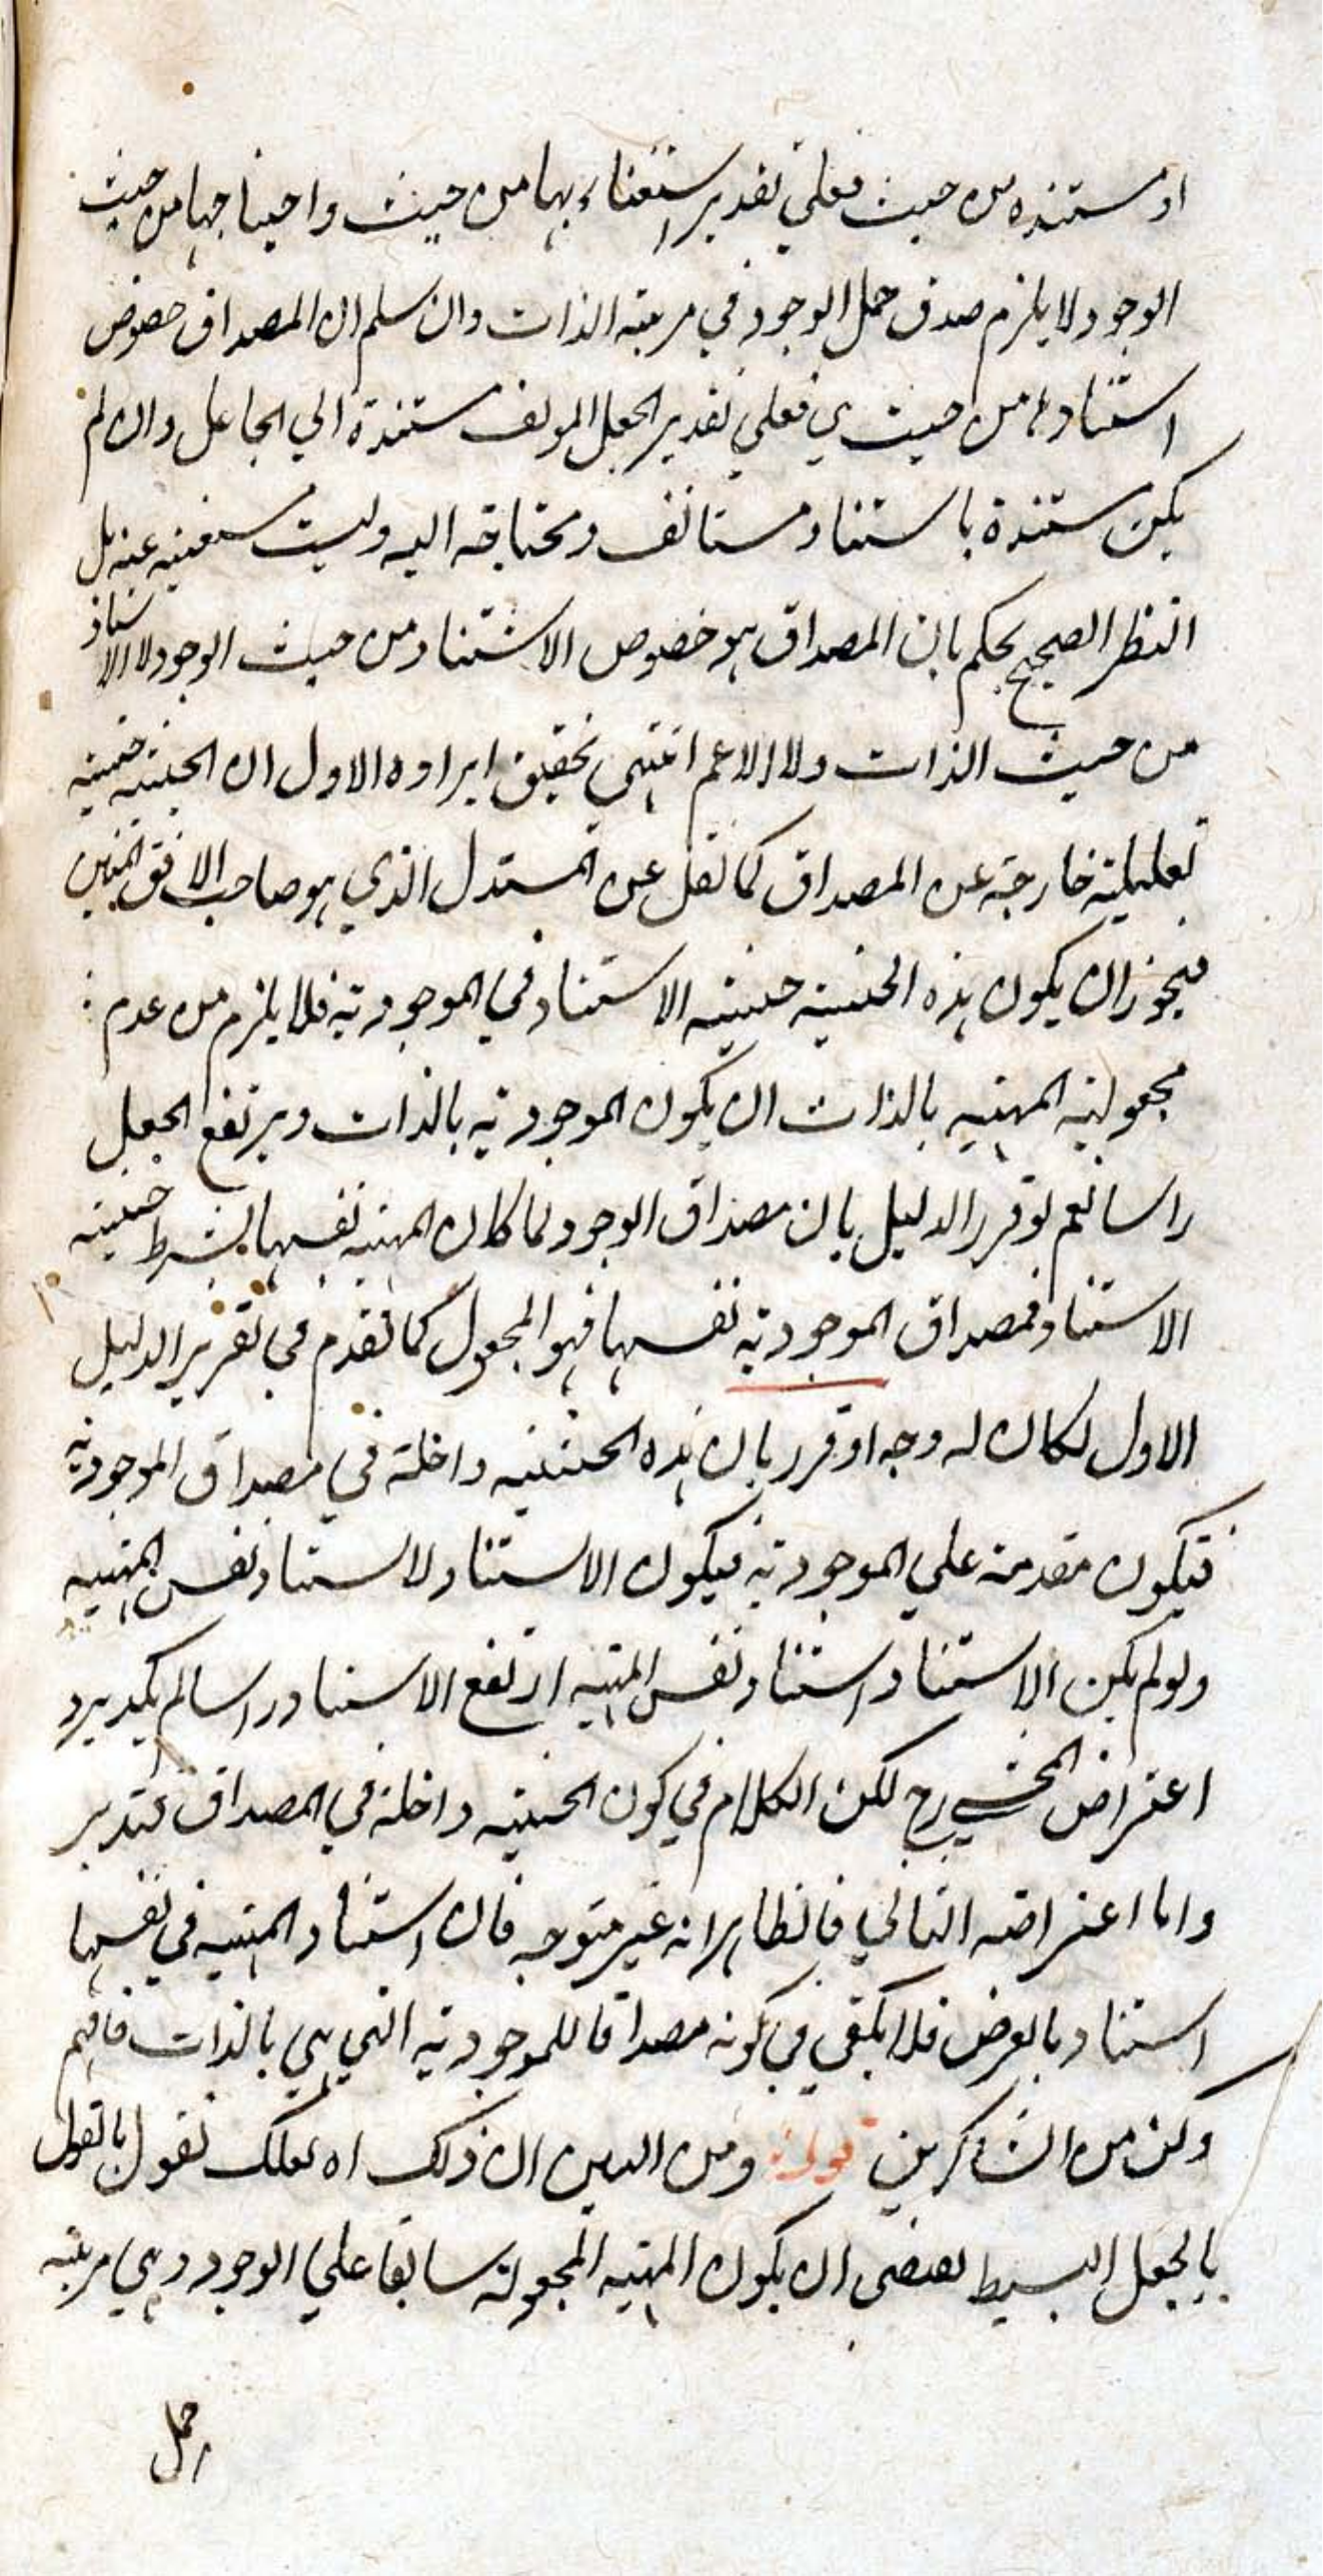 او مستنده من حيث فعلي تقدير استغناء بها من حيث واحتياجها من حيث
الوجود لا يلزم صدق حمل الوجود في مرتبة الذات وان سلم ان المصداق خصوص
استنادها من حيث هي فعلي تقدير الجعل المولف مستندة الي الجاعل وان لم
يكن مستندة باستناد مستانف ومحتاجة اليه وليست مستغنيه عنه بل
النظر الصحيح يحكم بان المصداق هو خصوص الاستناد من حيث الوجود لا الاستناد
من حيث الذات ولا الاعم انتهي تحقيق ايراده الاول ان الحيثيه حيثيه
تعليلية خارجة عن المصداق كما نقل عن المستدل الذي هو صاحب الافق المبين
فيجوز ان يكون هذه الحيثيه حيثيه الاستناد في الموجودية فلا يلزم من عدم
مجعولية المهيه بالذات ان يكون الموجوديه بالذات ويرتفع الجعل
راسا نعم لو قرر الدليل بان مصداق الوجود لما كان المهية نفسها بشرط حيثيه
الاستناد فمصداق الموجودية نفسها فهو المجعول كما تقدم في تقرير الدليل
الاول لكان له وجه او قرر بان هذه الحيثيه داخلة في مصداق الموجودية
فيكون مقدمة علي الموجودية فيكون الاستناد لاستناد نفس المهيه
ولو لم يكن الاستناد استناد نفس المهيه ارتفع الاستناد راسا لم يكد يرد
اعتراض المحشي رح لكن الكلام في كون الحيثيه داخلة في المصداق فتدبر
واما اعتراضه الثاني فالظاهر انه غير متوجه فان استناد المهيه في نفسها
استناد بالعرض فلا يكفي في كونه مصداقا للموجودية التي هي بالذات فافهم
وكن من الشاكرين قوله ومن البين ان ذلك اه لعلك تقول بالقول
بالجعل البسيط يقتضي ان يكون المهيه المجعولة سابقا علي الوجود وهي مرتبه
حمل